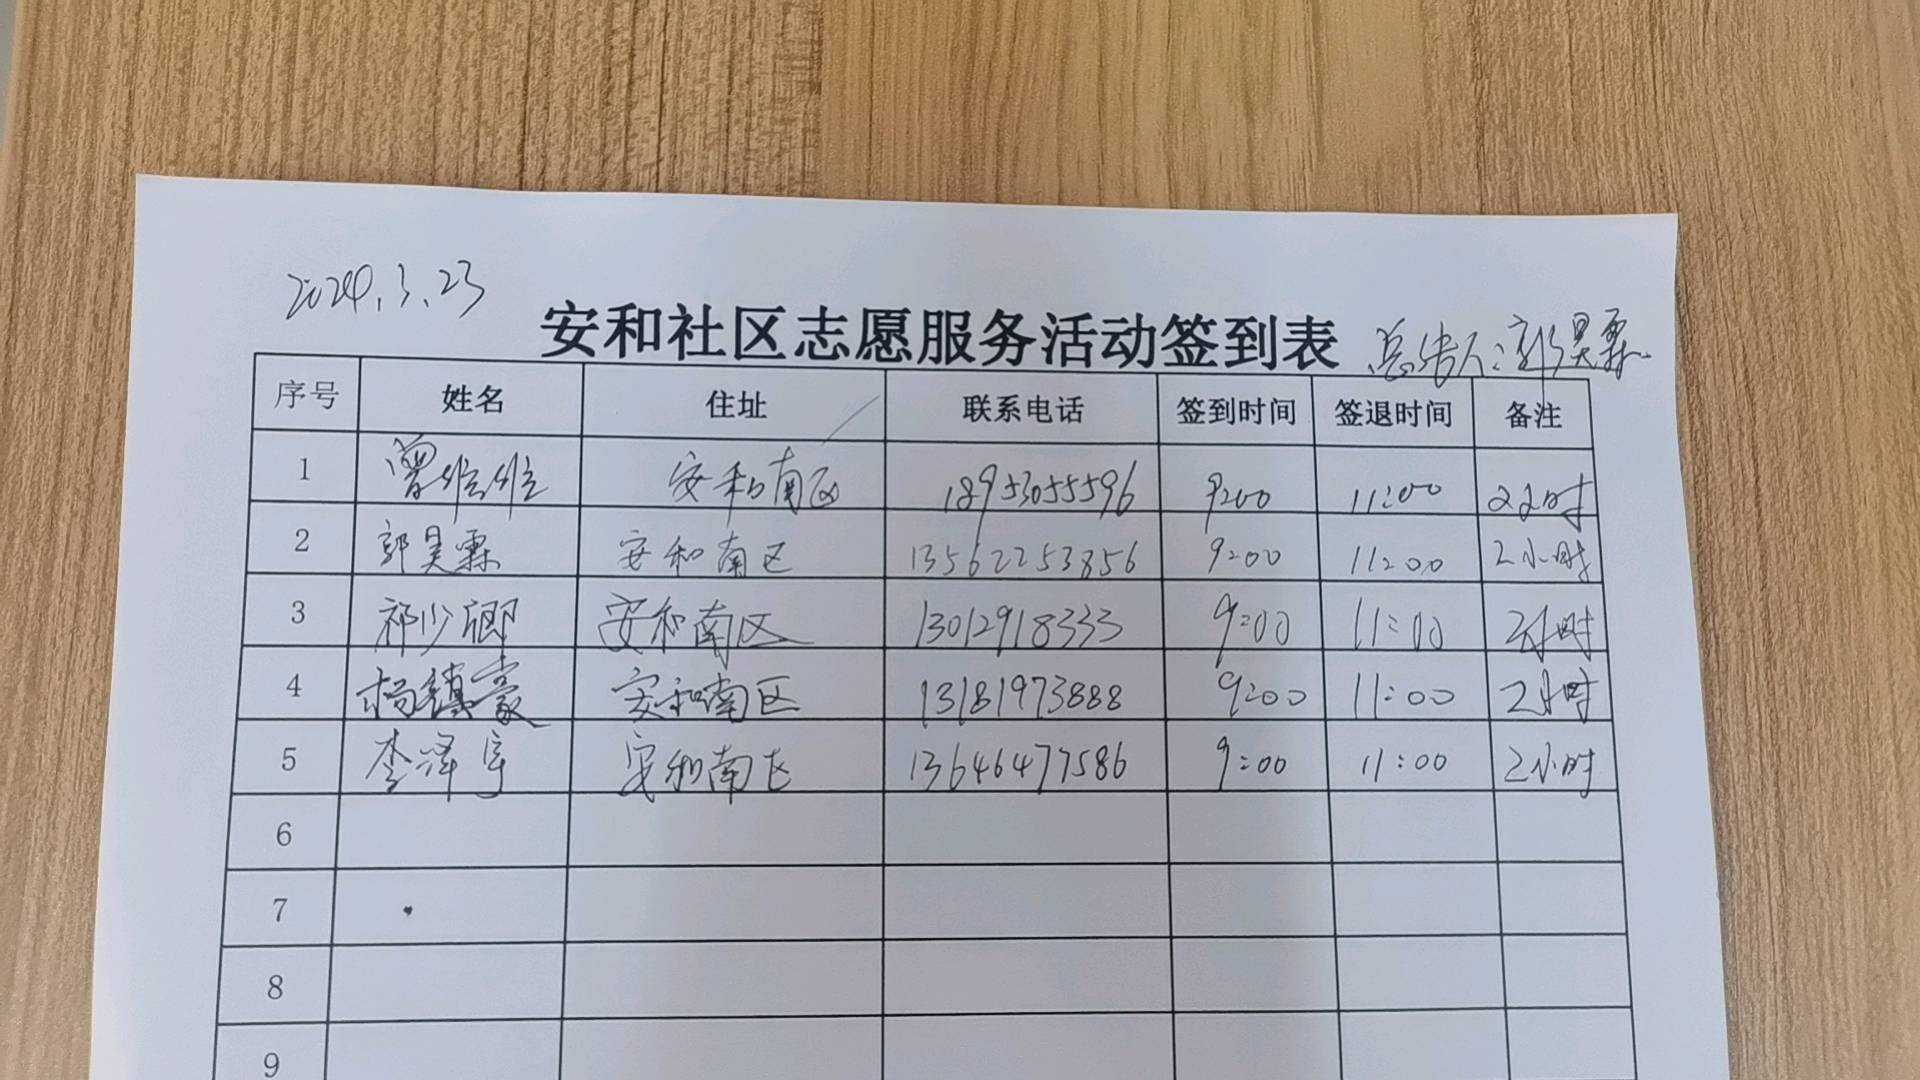 2024.3.23
安和社区志愿服务活动签到表 总告人:郭昊霖
序号 姓名 住址 联系电话 签到时间 签退时间 备注
1 曾维维 安和南区 18953055596 9:00 11:00 2小时
2 郭昊霖 安和南区 13562253856 9:00 11:00 2小时
3 祁少卿 安和南区 13012918333 9:00 11:00 2小时
4 杨镇豪 安和南区 13181973888 9:00 11:00 2小时
5 李泽宇 安和南区 13646477586 9:00 11:00 2小时
6
7
8
9